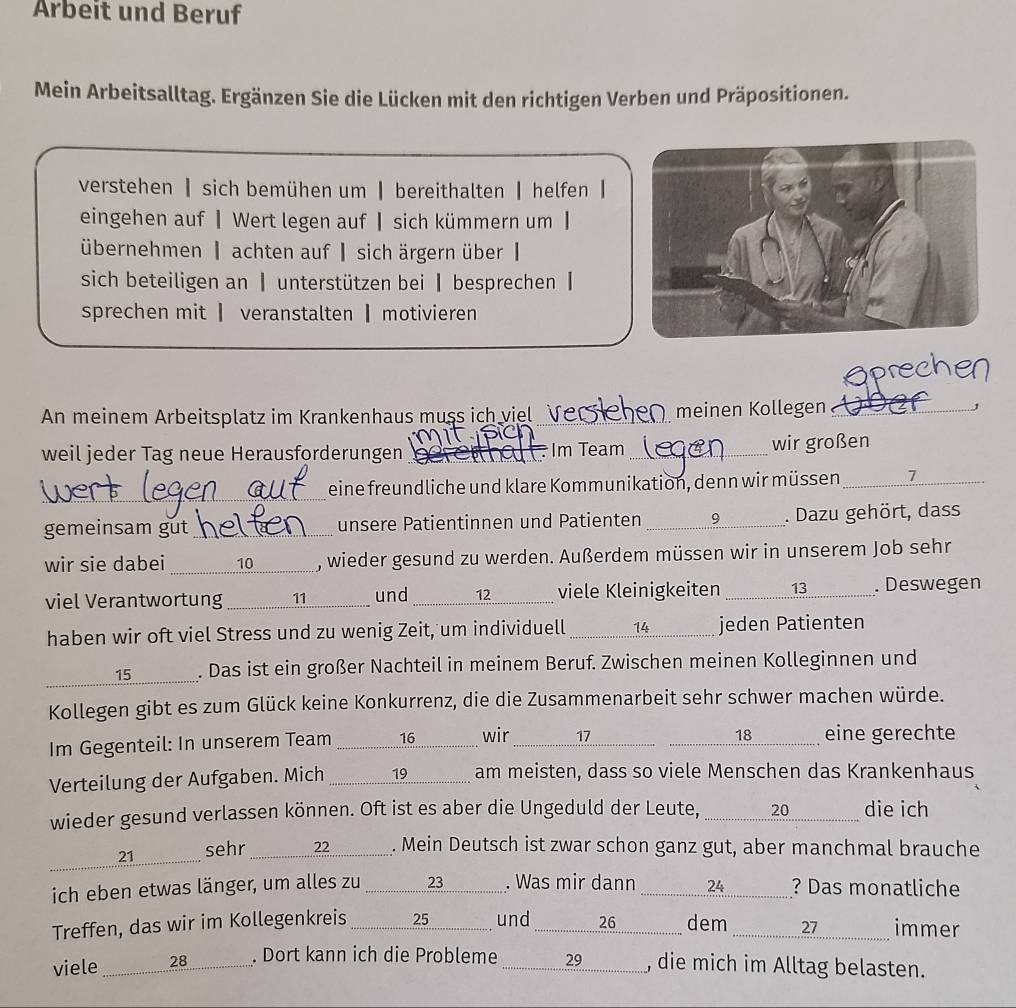 Arbeit und Beruf
Mein Arbeitsalltag. Ergänzen Sie die Lücken mit den richtigen Verben und Präpositionen.
verstehen | sich bemühen um | bereithalten | helfen |
eingehen auf | Wert legen auf | sich kümmern um |
übernehmen | achten auf | sich ärgern über |
sich beteiligen an | unterstützen bei | besprechen |
sprechen mit | veranstalten | motivieren
sprechen
An meinem Arbeitsplatz im Krankenhaus muss ich viel verstehen meinen Kollegen über,
mit sich
weil jeder Tag neue Herausforderungen bereithält. Im Team legen wir großen
Wert legen auf eine freundliche und klare Kommunikation, denn wir müssen 7
gemeinsam gut helfen unsere Patientinnen und Patienten 9. Dazu gehört, dass
wir sie dabei 10, wieder gesund zu werden. Außerdem müssen wir in unserem Job sehr
viel Verantwortung 11 und 12 viele Kleinigkeiten 13. Deswegen
haben wir oft viel Stress und zu wenig Zeit, um individuell 14 jeden Patienten
15. Das ist ein großer Nachteil in meinem Beruf. Zwischen meinen Kolleginnen und
Kollegen gibt es zum Glück keine Konkurrenz, die die Zusammenarbeit sehr schwer machen würde.
Im Gegenteil: In unserem Team 16 wir 17 18 eine gerechte
Verteilung der Aufgaben. Mich 19 am meisten, dass so viele Menschen das Krankenhaus
wieder gesund verlassen können. Oft ist es aber die Ungeduld der Leute, 20 die ich
21 sehr 22. Mein Deutsch ist zwar schon ganz gut, aber manchmal brauche
ich eben etwas länger, um alles zu 23. Was mir dann 24? Das monatliche
Treffen, das wir im Kollegenkreis 25 und 26 dem 27 immer
viele 28. Dort kann ich die Probleme 29, die mich im Alltag belasten.